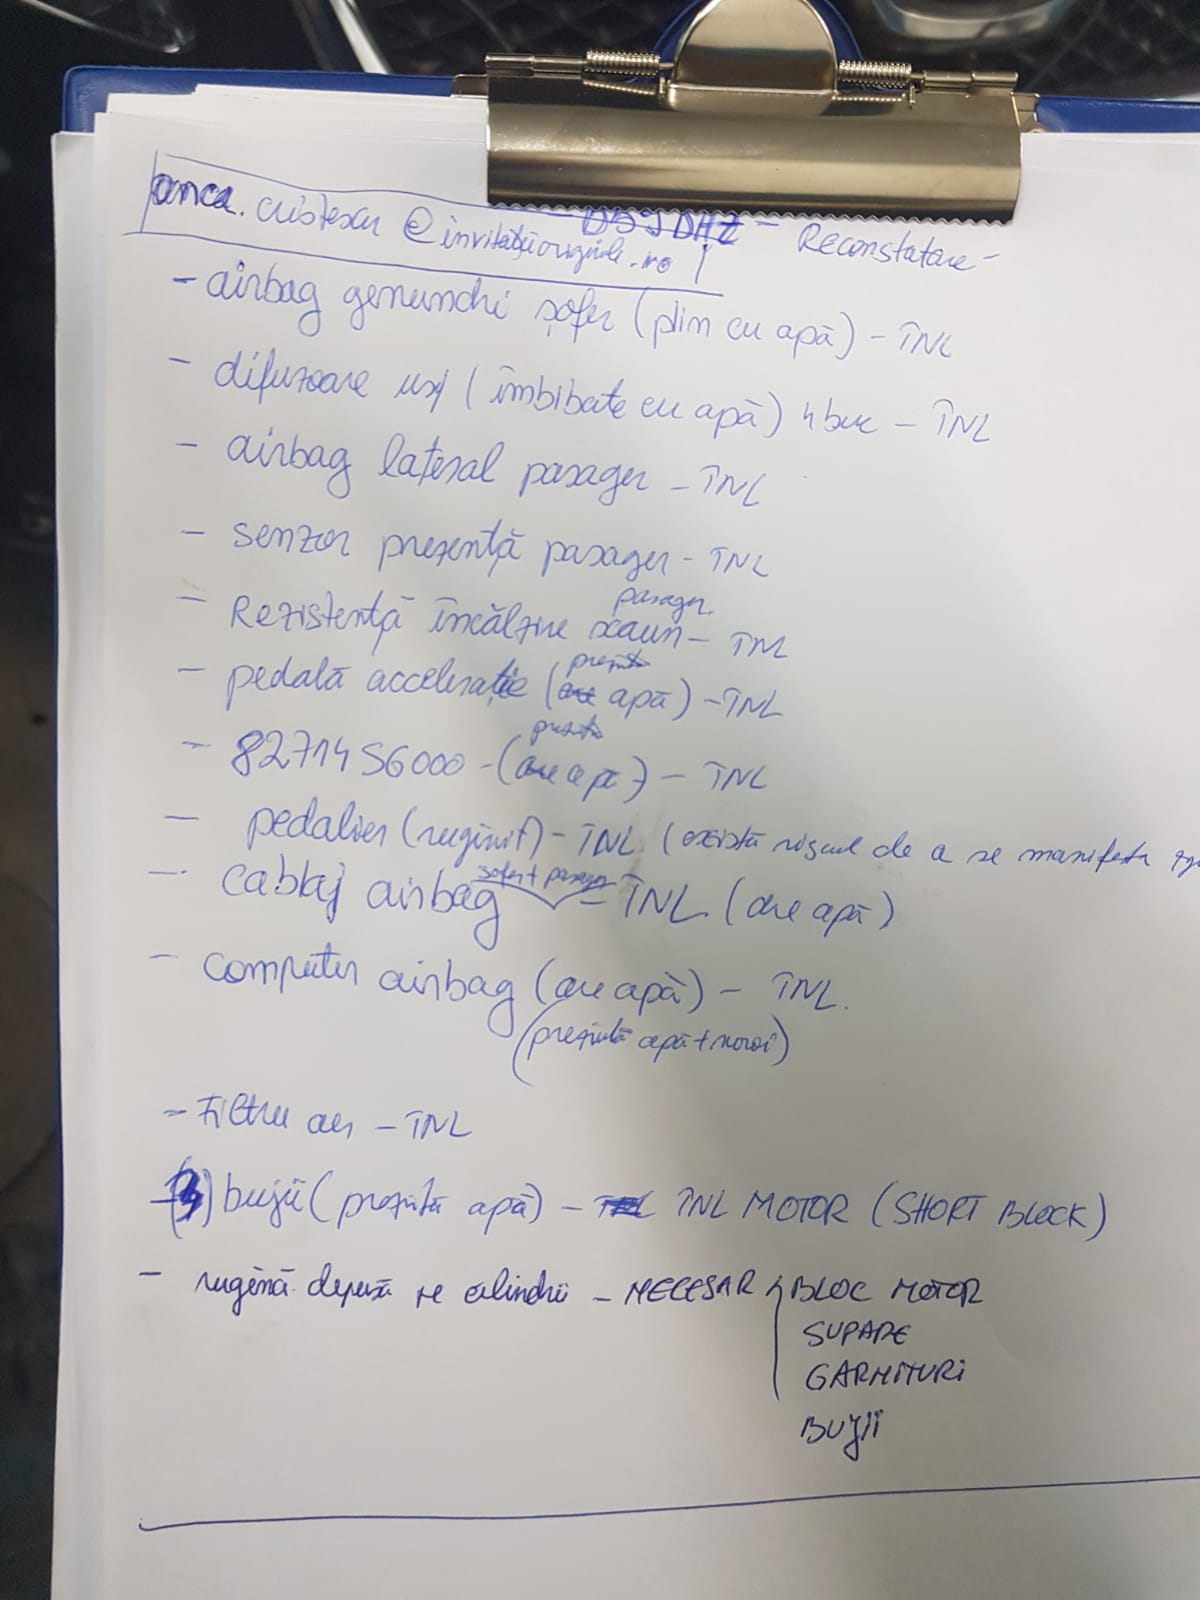 anca.cristescu@invitatiioriginale.ro
- Reconstatare -
- airbag genunchi șofer (plin cu apă) - ÎNL
- difuzoare uși (îmbibate cu apă) 4 buc - ÎNL
- airbag lateral pasager - ÎNL
- senzor prezență pasager - ÎNL
pasager
- Rezistență încălzire scaun - ÎNL
prezintă
- pedală accelerație (are apă) - ÎNL
prezintă
- 82714S6000 - (are apă) - ÎNL
- pedalier (ruginit) - ÎNL. (există riscul de a se manifesta
șofer + pasager
- cablaj airbag - ÎNL. (are apă)
- computer airbag (are apă) - ÎNL.
(prezintă apă + noroi)
- Filtru aer - ÎNL
bujii (prezintă apă) - ÎNL MOTOR (SHORT BLOCK)
- rugină depusă pe cilindrii - NECESAR BLOC MOTOR
SUPAPE
GARNITURI
BUJII